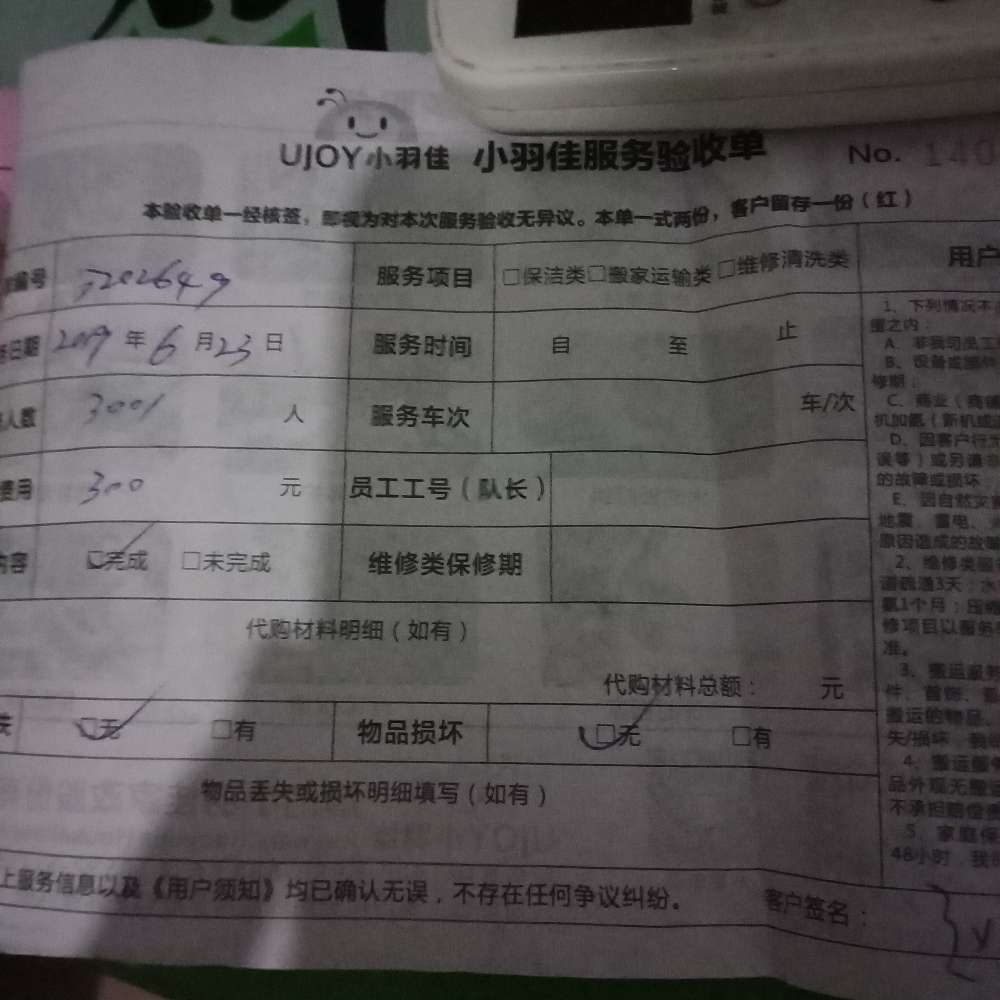 UJOY小羽佳 小羽佳服务验收单 No. 140
本验收单一经核签，即视为对本次服务验收无异议。本单一式两份，客户留存一份（红）
编号 7202649 服务项目 □保洁类□搬家运输类□维修清洗类 用户
日期 2019年6月23日 服务时间 自 至 止
人数 人 服务车次 车/次
费用 300 元 员工工号（队长）
内容 □完成 □未完成 维修类保修期
代购材料明细（如有）
代购材料总额： 元
失 □无 □有 物品损坏 □无 □有
物品丢失或损坏明细填写（如有）
上服务信息以及《用户须知》均已确认无误，不存在任何争议纠纷。 客户签名：
1、下列情况不
围之内：
A、非我司员工
B、设备或部件
修期；
C、商业（商铺
机加氨（新机或
D、因客户行为
误等）或另请
的故障或损坏
E、因自然灾害
地震、雷电、
原因造成的故障
2、维修类服务
道疏通3天；水
氨1个月；压缩
修项目以服务
准。
3、搬运服务
件、首饰、
搬运的物品、
失/损坏，我
4、搬运服务
品外观无
不承担赔偿责
5、家庭保
48小时，我